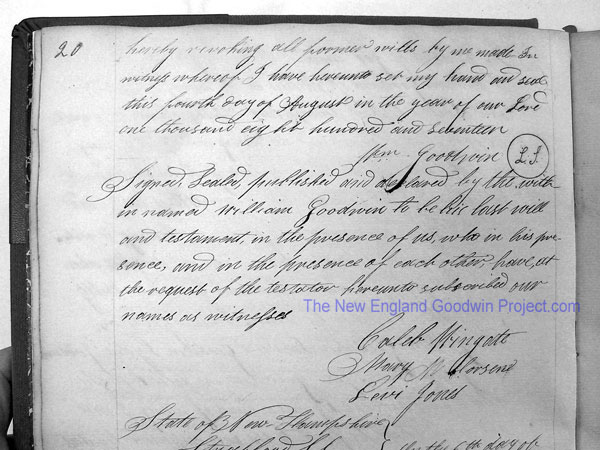 20
hereby revoking all foomer wills by me made In
witness whereof I have hereunto set my hand and seal
this fourth day of August in the year of our Lord
one thousand eight hundred and seventeen
Wm. Goodwin L.S.
Signed, Sealed, published and declared by the with-
in named William Goodwin to be his last will
and testament, in the presence of us, who in his pre-
sence, and in the presence of each other, have, at
the request of the testator hereunto subscribed our
names as witnesses
The New England Goodwin Project.com
Caleb Wingate
Mary
Levi Jones
State of New Hampshire
Strafford SS. the 6th day of